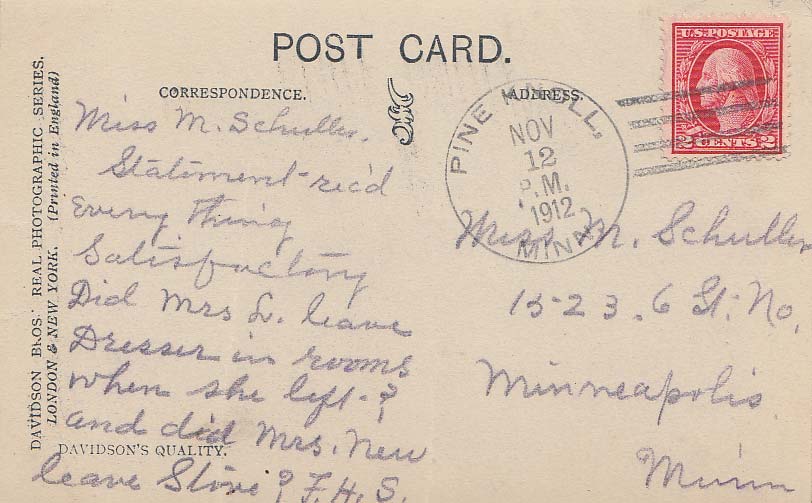 POST CARD.
CORRESPONDENCE.
ADDRESS.
U.S. POSTAGE
2 CENTS 2
PINE KNOLL,
NOV
12
P.M.
1912
MINN.
DAVIDSON BROS.' REAL PHOTOGRAPHIC SERIES.
LONDON & NEW YORK. (Printed in England)
Miss M. Schuller.
Statement-rec'd
Every Thing
Satisfactory
Did Mrs L. leave
Dresser in rooms
when she left-?
and did Mrs. New
leave Stove? F.H.S.
DAVIDSON'S QUALITY.
Miss M. Schuller
15-23. 6 St. No.
Minneapolis
Minn